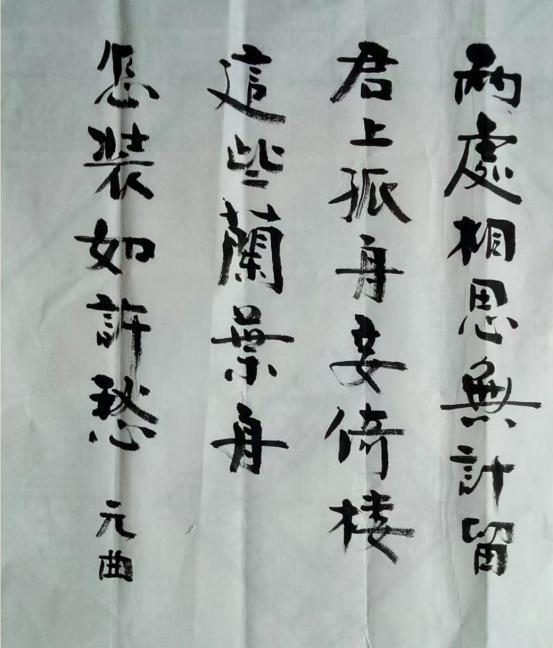 兩處相思無計留
君上孤舟妾倚楼
這些蘭葉舟
怎装如許愁
元曲